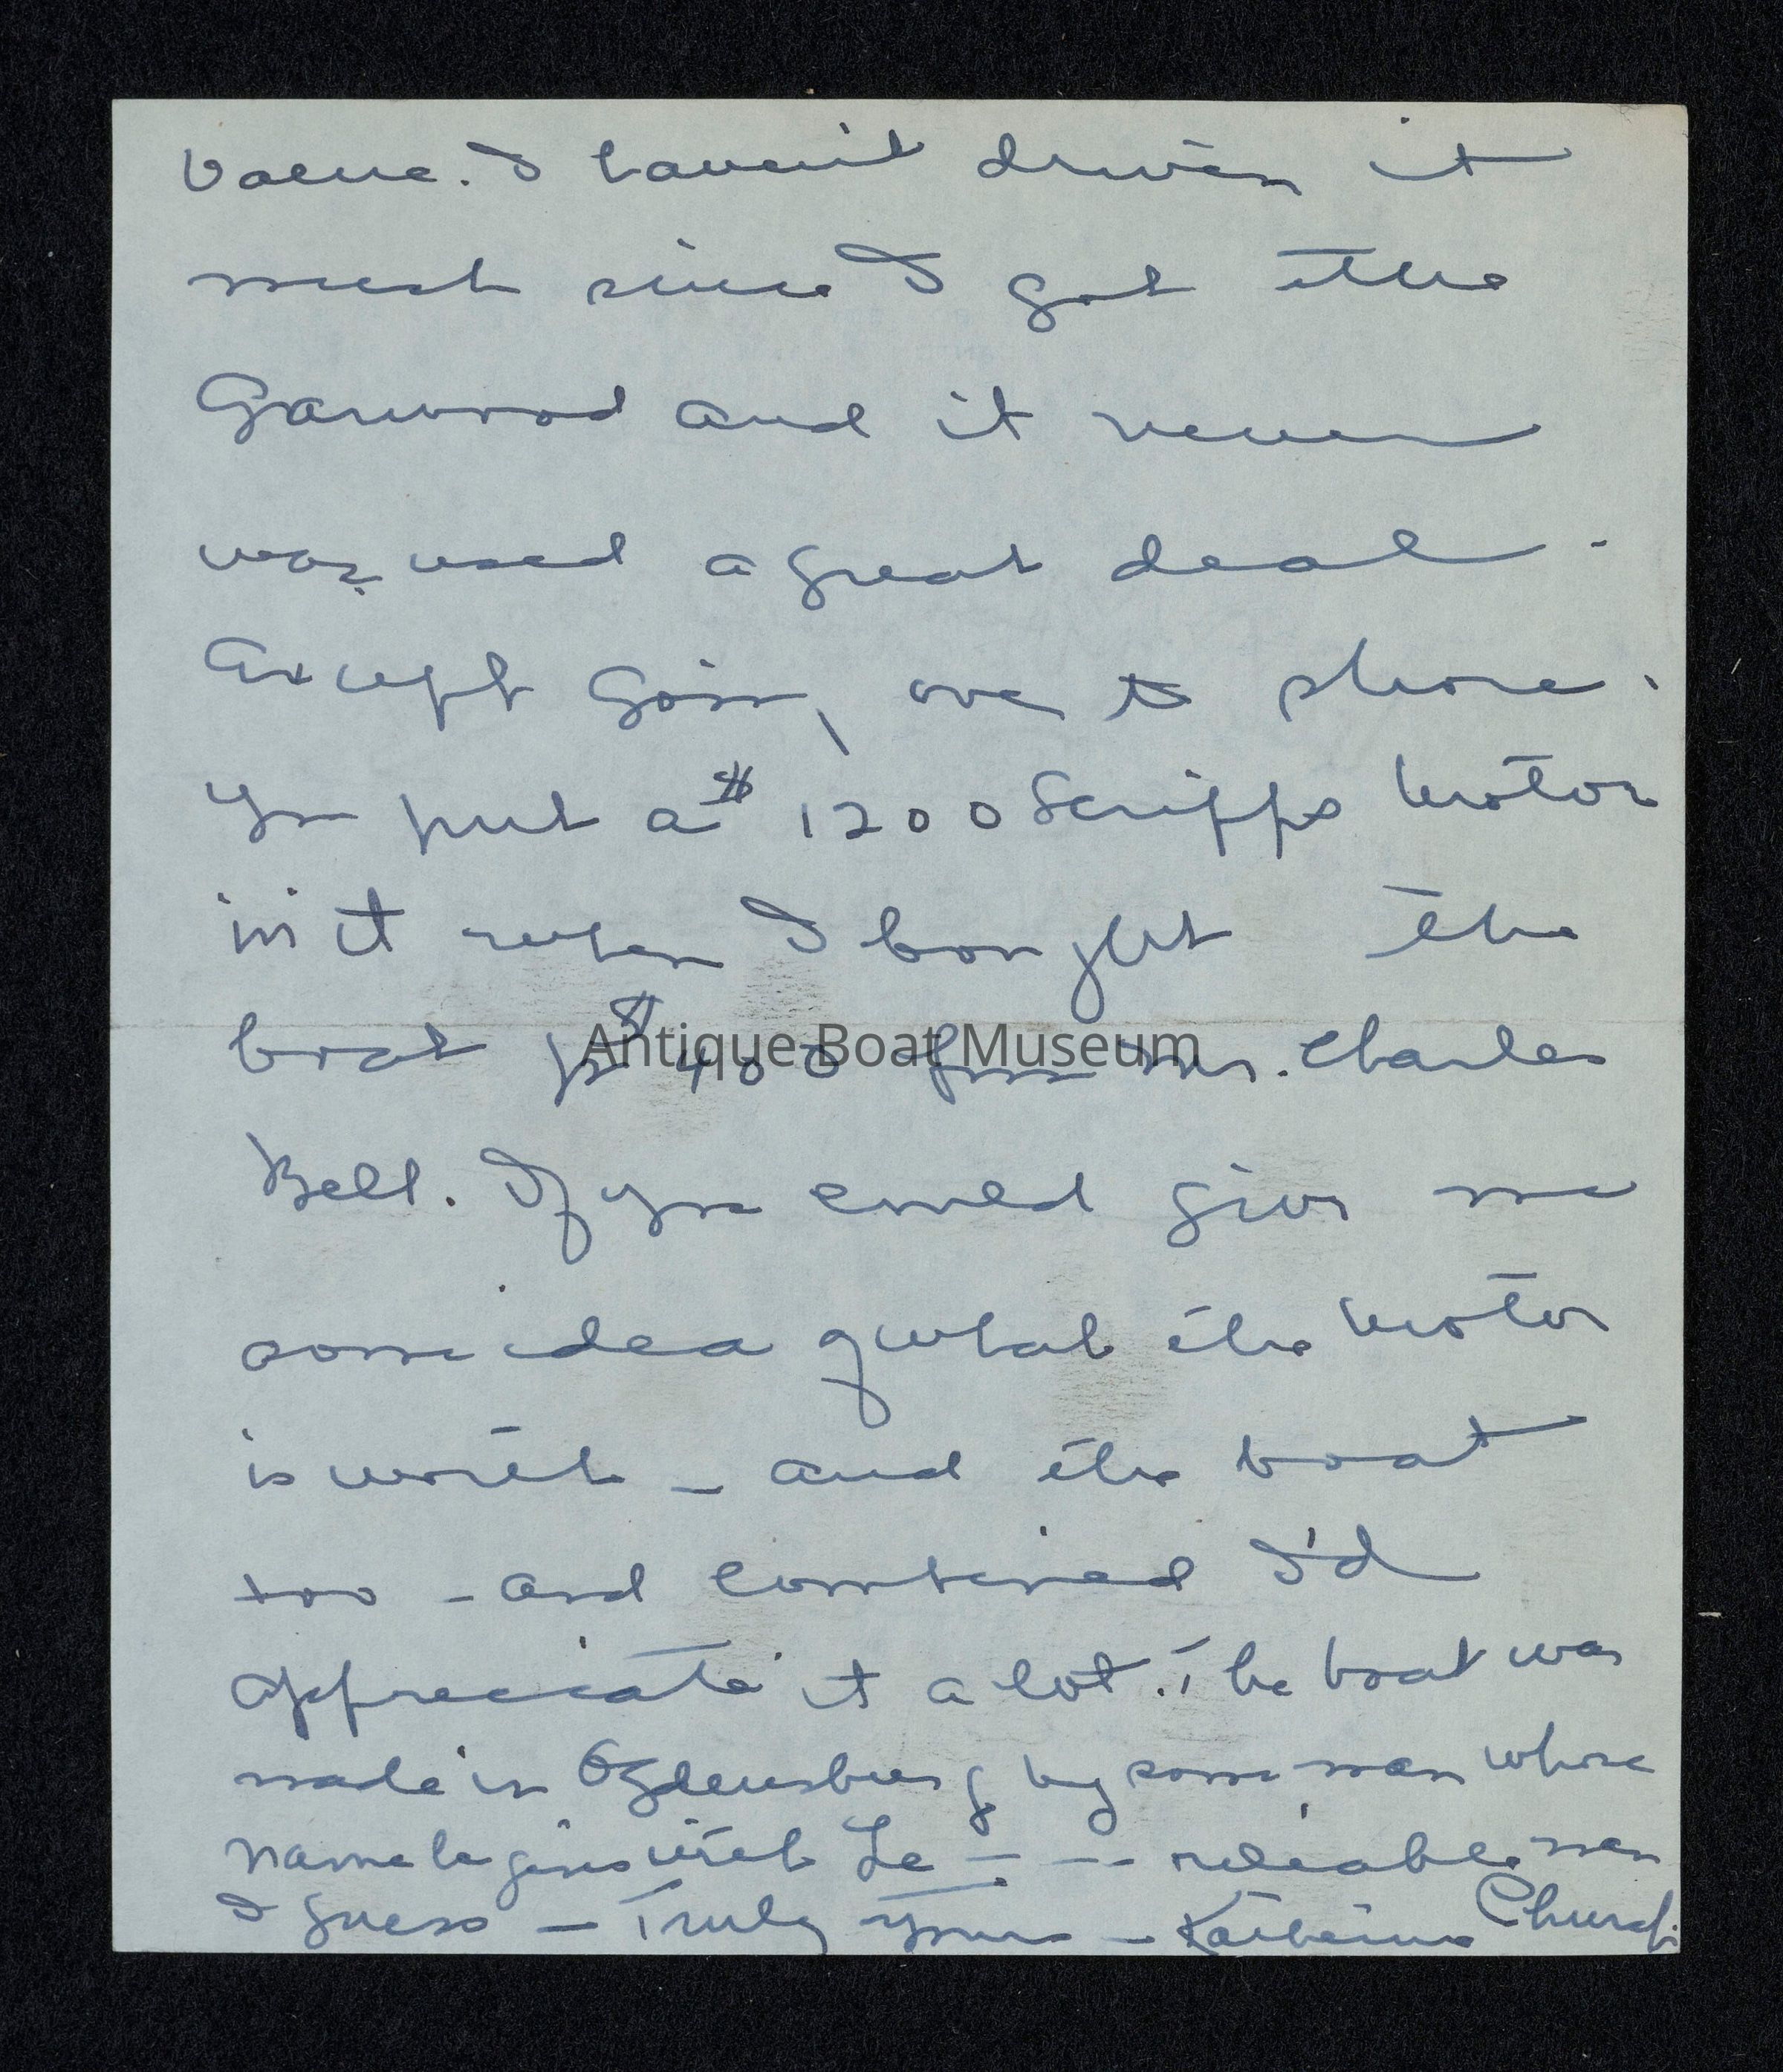 value. I haven't driven it
much since I got the
Garwood and it never
was used a great deal.
Except going over to shore.
You put a $1200 Scripps motor
in it when I bought the
boat for $400 from Mr. Charles
Bell. If you could give me
some idea of what the motor
is worth - and the boat
too - and combined I'd
appreciate it a lot. The boat was
made in Ogdensburg by some man whose
name begins with Le - - - reliable man
I guess - Truly yours - Katherine Church
Antique Boat Museum